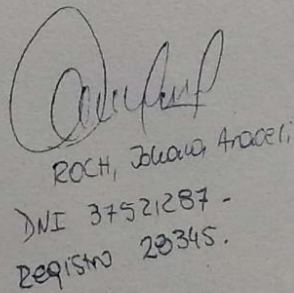 ROCH, Johana Araceli
DNI 37521287-
Registro 28345.